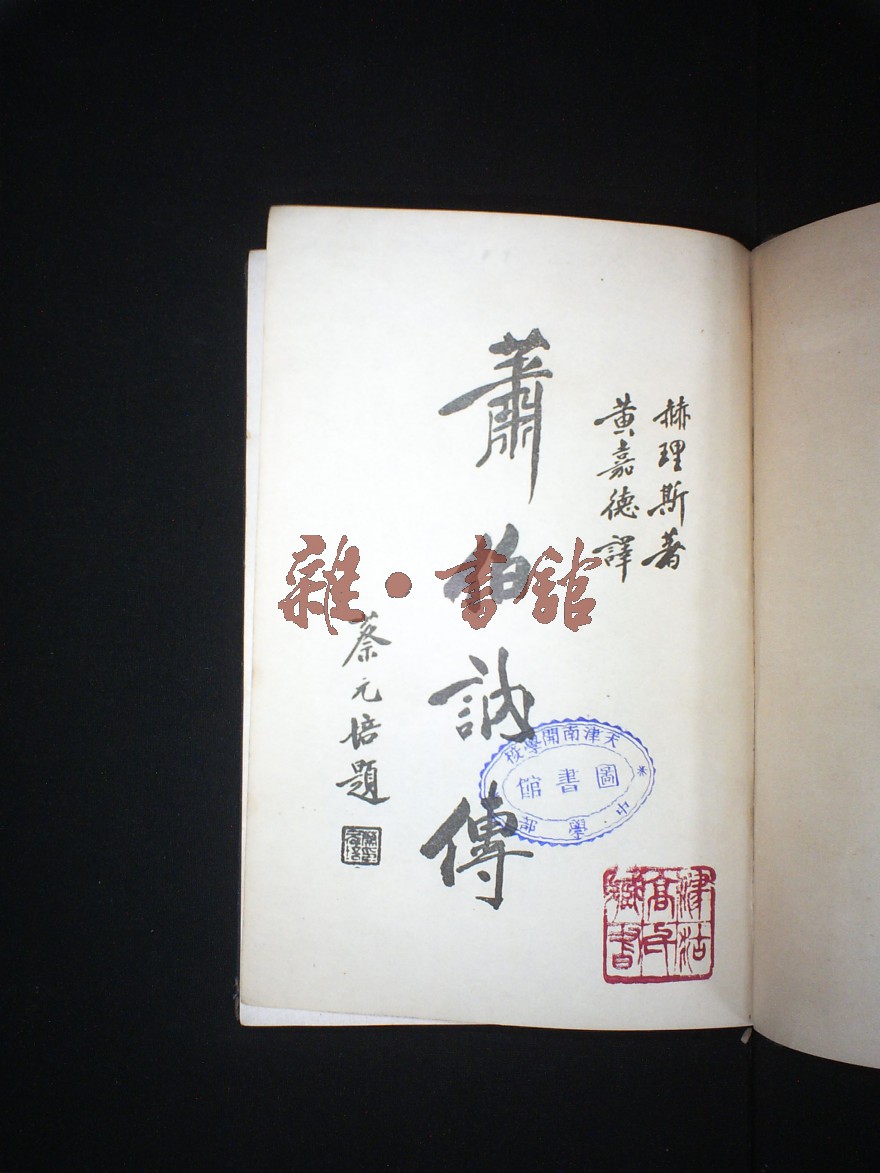 赫理斯著
黃嘉德譯
蕭伯訥傳
蔡元培題
雜·書館
天津南開學校
圖書館
中學部
津沽
高氏
藏書